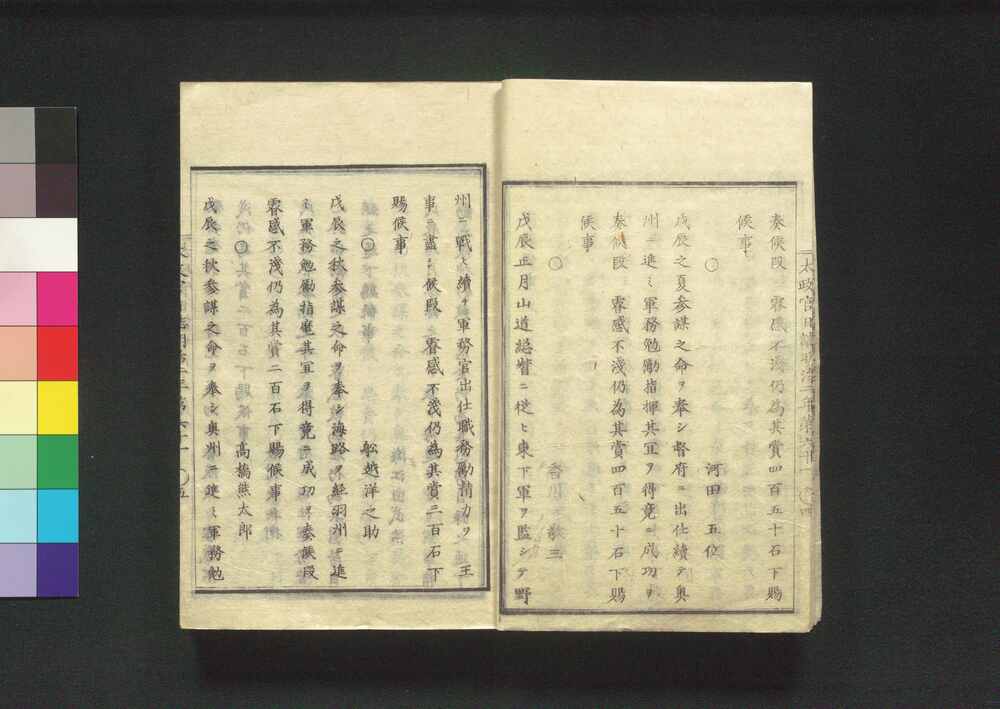 奏候段　睿感不淺仍為其賞四百五十石下賜
候事
○　河田　五位
戊辰之夏参謀之命ヲ奉シ督府ニ出仕續テ奥
州ニ進ミ軍務勉勵指揮其宜ヲ得竟ニ成功ヲ
奏候段　睿感不淺仍為其賞四百五十石下賜
候事
○　香川　敬三
戊辰正月山道總督ニ從ヒ東下軍ヲ監シテ野
州ニ戰ヒ續テ軍務官出仕職務勵精力ヲ　王
事ニ盡シ候段　睿感不淺仍為其賞三百石下
賜候事
○　舩越洋之助
戊辰之秋参謀之命ヲ奉シ海路ヲ経羽州ニ進
ミ軍務勉勵指麾其宜ヲ得竟ニ成功ヲ奏候段
睿感不淺仍為其賞二百石下賜候事
○　高橋熊太郎
戊辰之秋参謀之命ヲ奉シ奥州ニ進ミ軍務勉